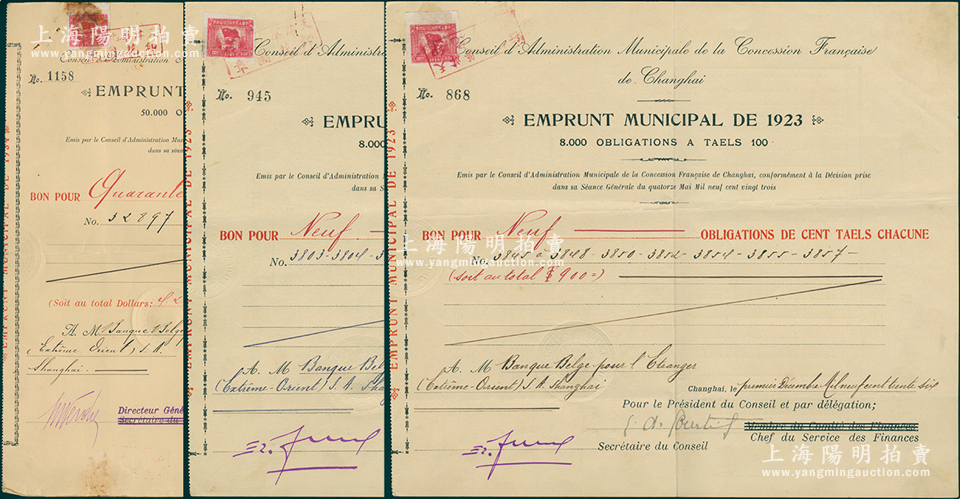 上海陽明拍賣
www.yangmingauction.com
No. 1158
EMPRUNT
50.000 O
Emis par le Conseil d'Administration Mu
dans sa séan
BON POUR Quarante
No. 32897
(Soit au total Dollars:
A. M Banque Belge
(Extrême Orient) S.A.
Shanghai.
Directeur Géné
Secrétaire du
EMPRUNT MUNICIPAL DE 1934
Conseil d'Administra
No. 945
EMPRU
8.000
Emis par le Conseil d'Administration
dans sa S
BON POUR Neuf
No. 3803-3804-3
A. M Banque Bel
(Extrême-Orient) S.A. Sha
EMPRUNT MUNICIPAL DE 1923
Conseil d'Administration Municipale de la Concession Française
de Changhai
No. 868
EMPRUNT MUNICIPAL DE 1923
8.000 OBLIGATIONS A TAELS 100
Emis par le Conseil d'Administration Municipale de la Concession Française de Changhai, conformément à la Décision prise
dans sa Séance Générale du quatorze Mai Mil neuf cent vingt trois
BON POUR Neuf OBLIGATIONS DE CENT TAELS CHACUNE
No. 3845 à 3848-3850-3852-3854-3855-3857-
(soit au total ₮ 900=)
A. M Banque Belge pour l'Etranger
(Extrême-Orient) S.A. Shanghai
Changhai, le premier Décembre Mil neuf cent trente six
Pour le Président du Conseil et par délégation;
Membre du Comité des Finances
Secrétaire du Conseil
Chef du Service des Finances
EMPRUNT MUNICIPAL DE 1923
上海陽明拍賣
www.yangmingauction.com
上海陽明拍賣
www.yangmingauction.com